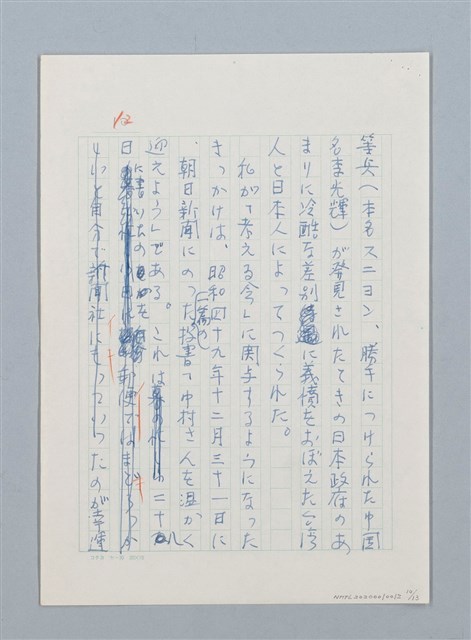 12
等兵(本名スニヨン、勝手につけられた中国
名李光輝)が発見されたときの日本政府のあ
まりに冷酷な差別に義憤をおぼえた台湾
人と日本人によってつくられた。
私が「考える会」に関与するようになった
きっかけは、昭和四十九年十二月三十一日に
朝日新聞にのった投書「中村さんを温かく
迎えよう」である。これは二十九
日に書いたのを郵便ではまにあわ
ないと自分で新聞社にもっていったのが幸運
NMTL20200010012
12/13